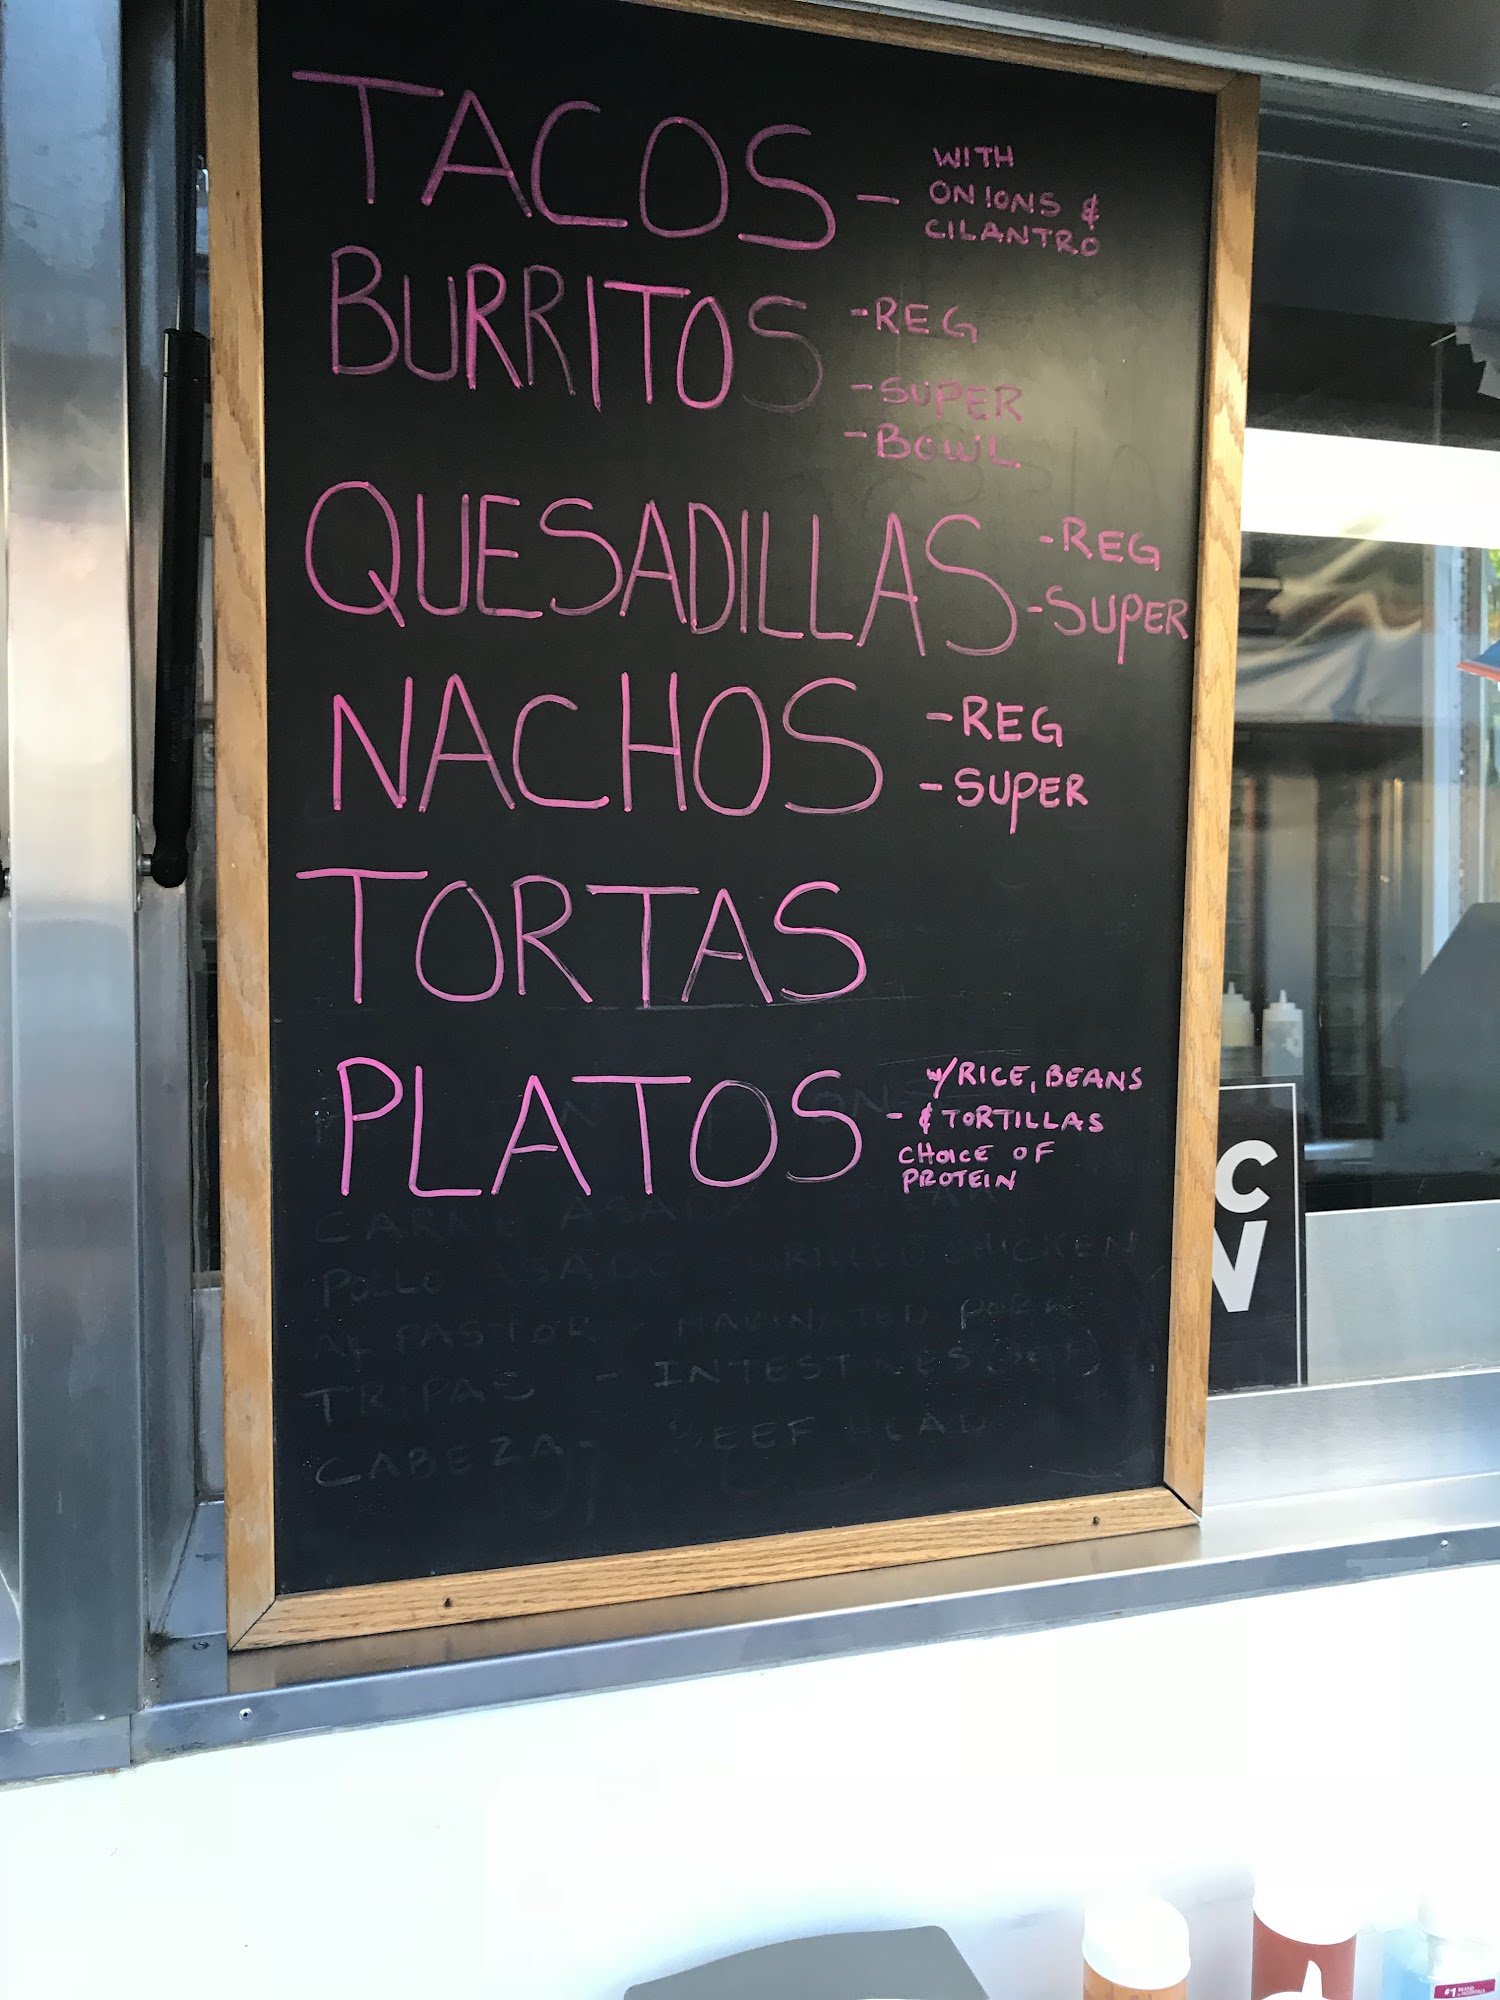 TACOS - WITH
ONIONS &
CILANTRO
BURRITOS -REG
-SUPER
-BOWL
QUESADILLAS -REG
-SUPER
NACHOS -REG
-SUPER
TORTAS
PLATOS - w/RICE, BEANS
& TORTILLAS
CHOICE OF
PROTEIN
CARNE ASADA
POLLO ASADO - GRILLED CHICKEN
AL PASTOR - MARINATED PORK
TRIPAS - INTESTINES (BEEF)
CABEZA - BEEF HEAD
C
V
#1 BRAND